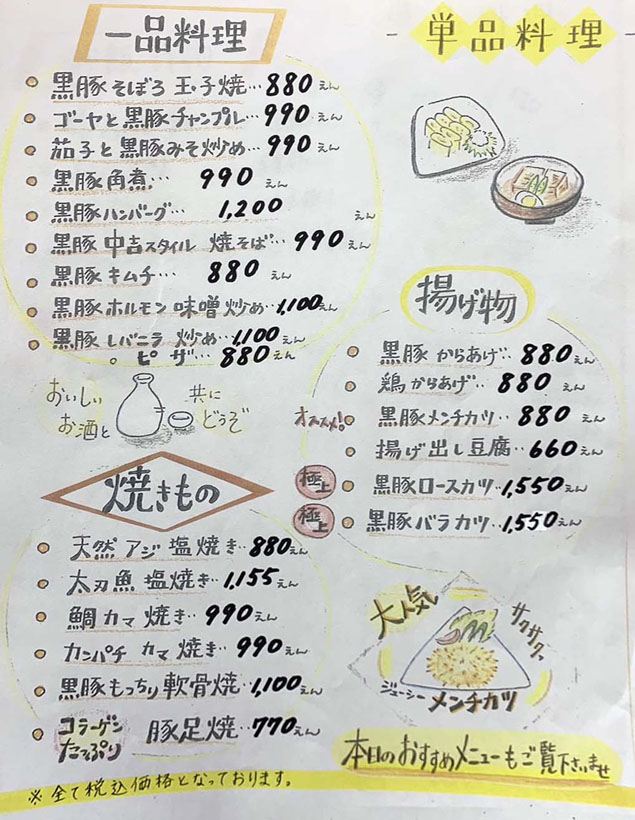 一品料理
黒豚そぼろ 玉子焼‥880えん
ゴーヤと黒豚チャンプル‥990えん
茄子と黒豚みそ炒め‥990えん
黒豚角煮… 990えん
黒豚ハンバーグ… 1,200えん
黒豚 中吉スタイル 焼そば…990えん
黒豚キムチ… 880えん
黒豚ホルモン 味噌炒め‥1,100えん
黒豚レバニラ 炒め‥1,100えん
ピザ‥880えん
おいしい
お酒と
共に
どうぞ
焼きもの
天然 アジ 塩焼き‥880えん
太刃魚 塩焼き‥1,155えん
鯛カマ 焼き‥990えん
カンパチ カマ 焼き‥990えん
黒豚もっちり軟骨焼‥1,100えん
コラーゲン
たっぷり
豚足焼‥770えん
※全て税込価格となっております。
- 単品料理 -
揚げ物
黒豚からあげ‥880えん
鶏からあげ‥880えん
オススメ! 黒豚メンチカツ‥880えん
揚げ出し豆腐‥660えん
極上 黒豚ロースカツ‥1,550えん
極上 黒豚バラカツ‥1,550えん
大人気
サクサク、
ジューシーメンチカツ
本日のおすすめメニューもご覧下さいませ